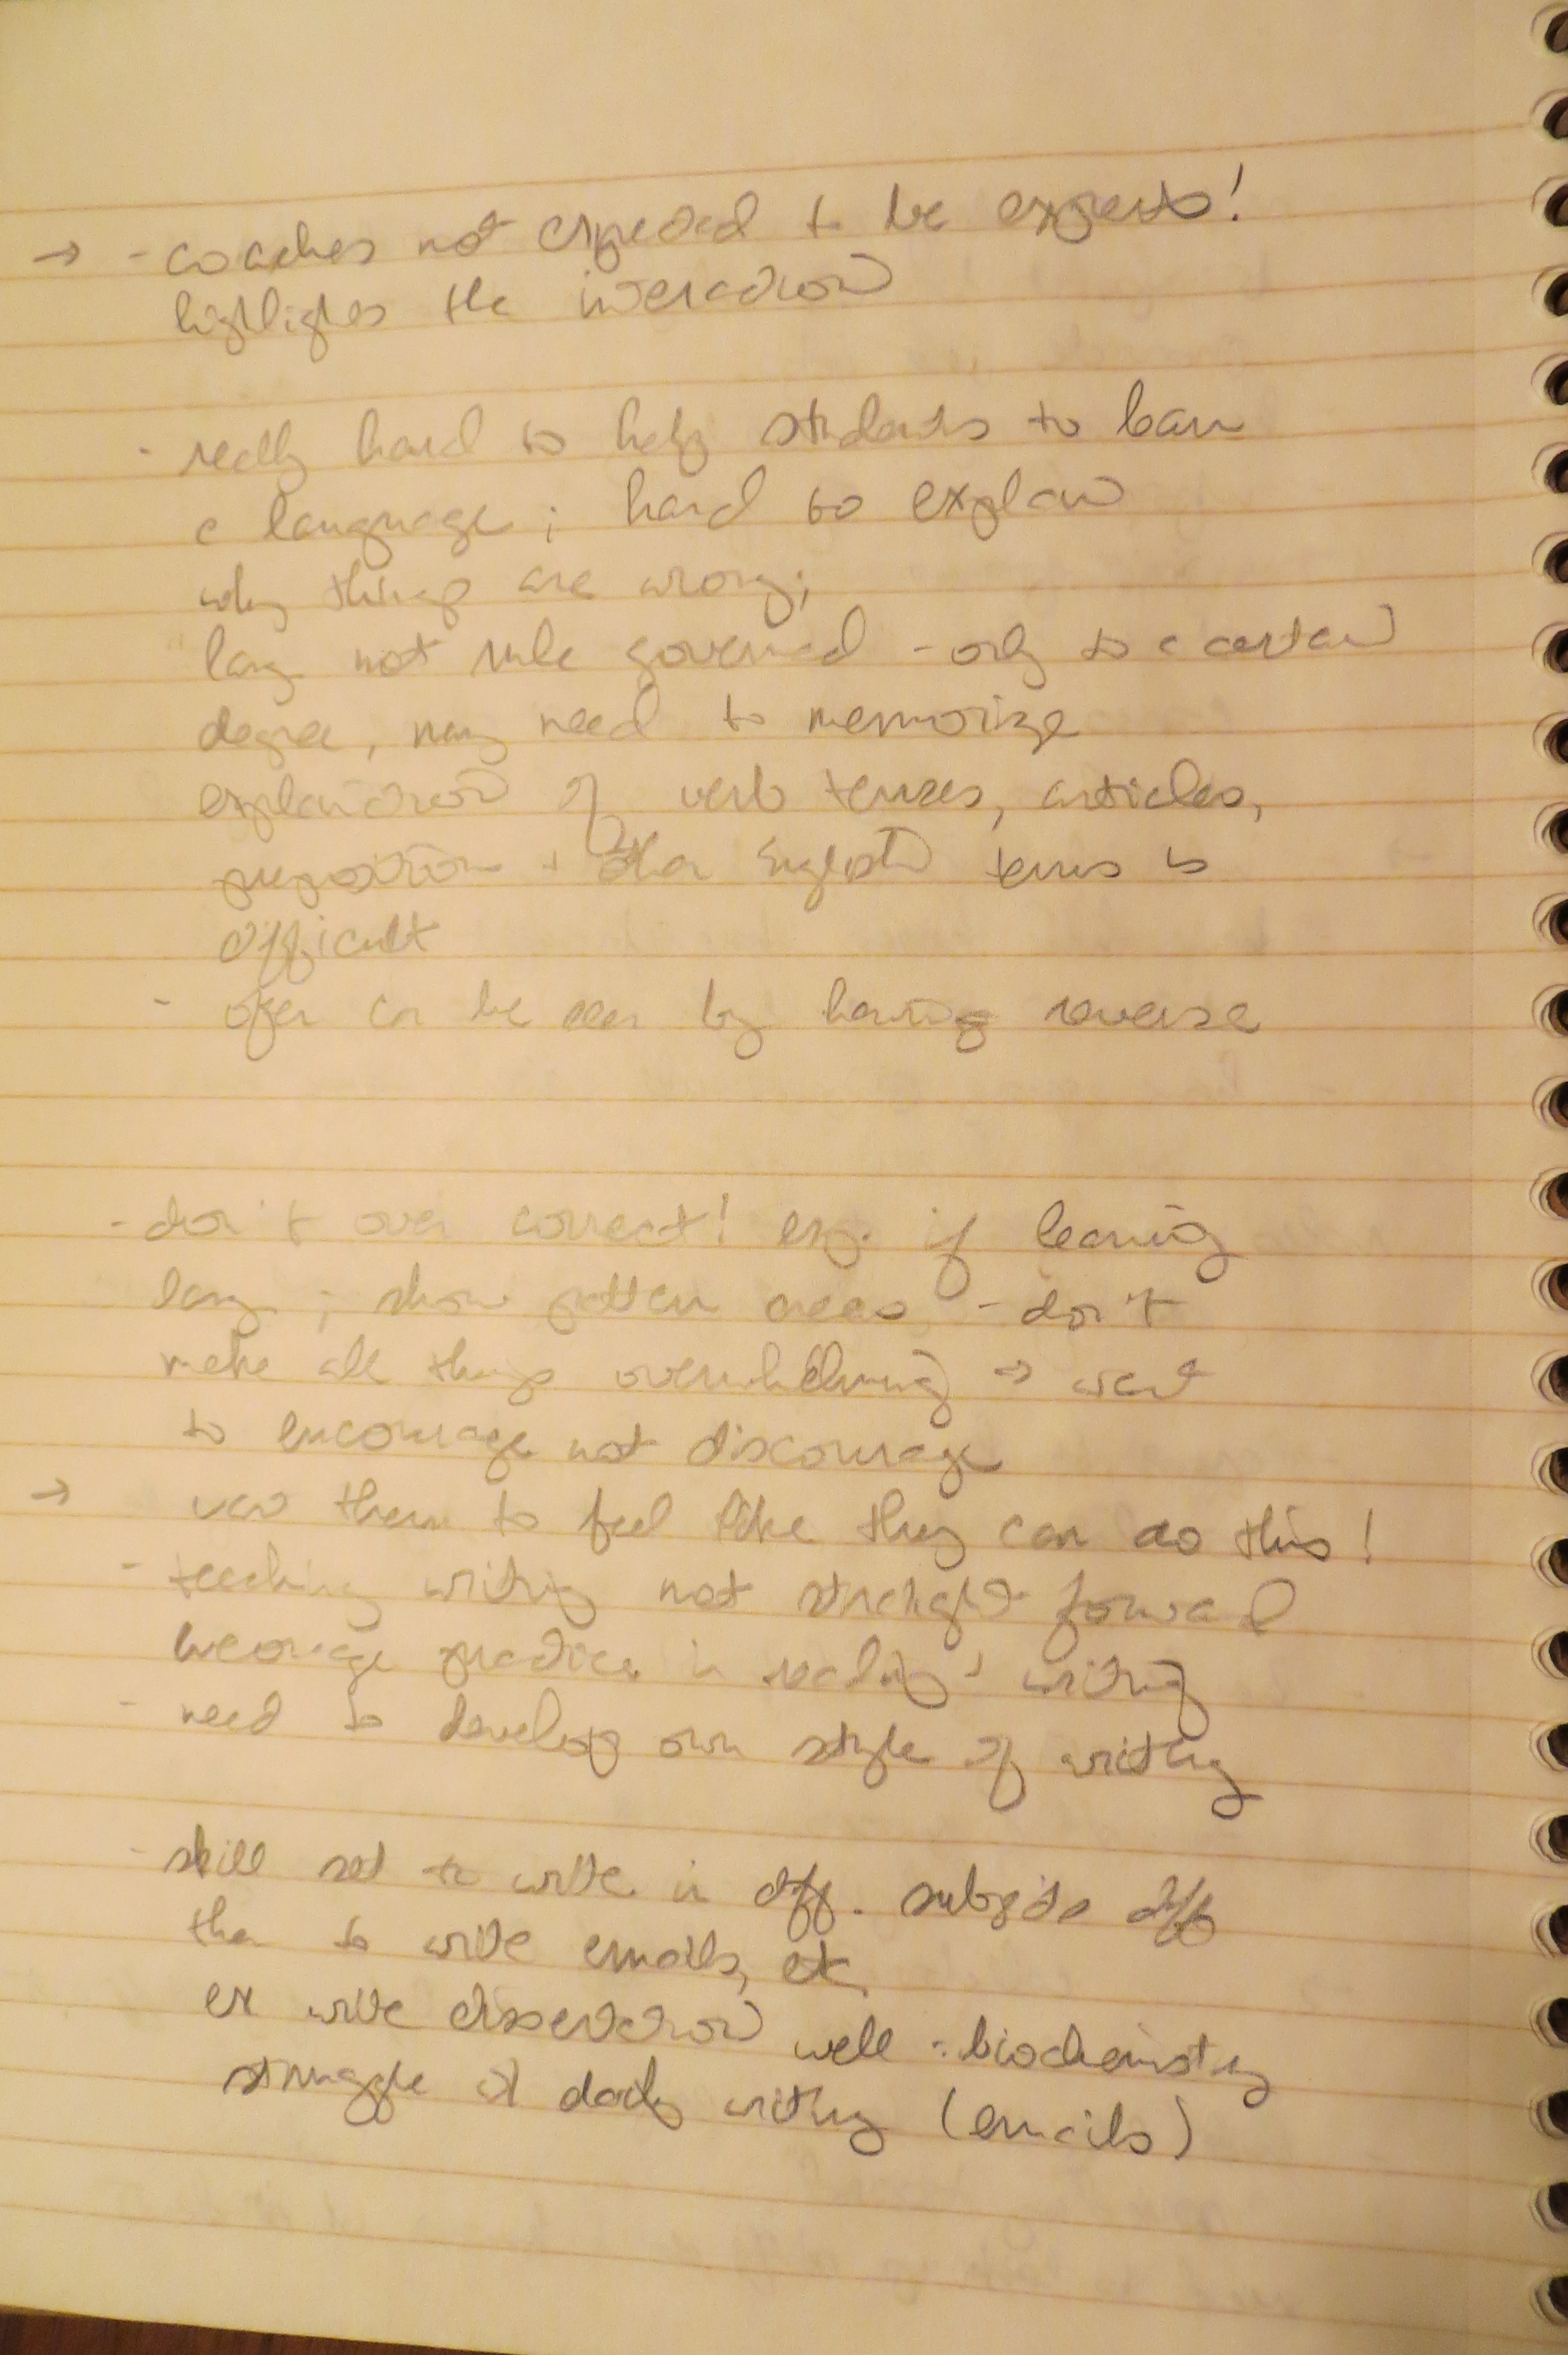 → - coaches not expected to be experts!
highlights the interaction
- really hard to help students to learn
a language; hard to explain
why things are wrong;
lang not rule governed - only to a certain
degree, may need to memorize
explanation of verb tenses, articles,
preposition + other English terms is
difficult
- often can be seen by having reverse
- don't over correct! eg. if learning
lang; show pattern areas - don't
make all things overwhelming → want
to encourage not discourage
→ want them to feel like they can do this!
- teaching writing not straight forward
leverage practice in reading, writing
- need to develop own style of writing
- skill set to write in diff. subjects diff
than to write emails, etc.
ex write dissertation well : biochemistry
struggle at daily writing (emails)